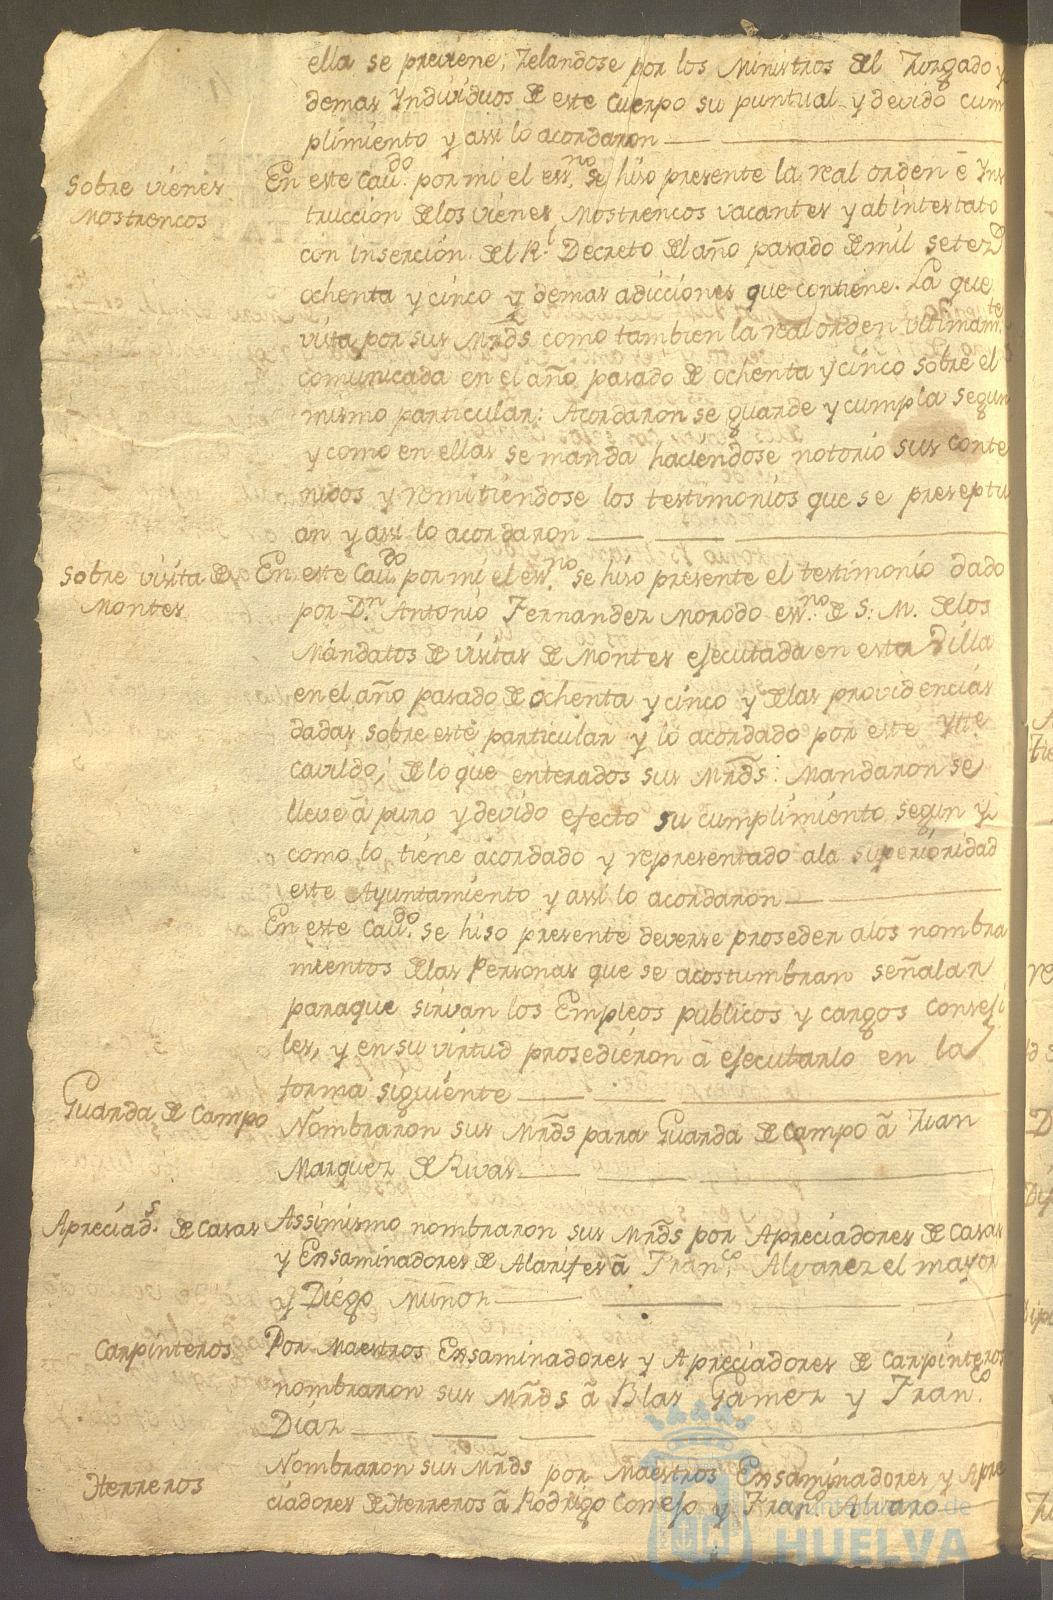 ella se previene; Zelandose por los Ministros del Juzgado y
demas Yndividuos de este Cuerpo su puntual y devido cum
plimiento y assi lo acordaron
Sobre vienes
Mostrencos
En este Cavdo. por mi el essno. se hiso presente la real orden è Yns
truccion de los vienes Mostrencos vacantes y abintestato
con Insercion del Rl. Decreto del año pasado de mil setezs
ochenta y cinco y demas adicciones que contiene. La que
vista por sus Mrds. como tambien la real orden ultimamte.
comunicada en el año pasado de ochenta y cinco sobre el
mismo particular: Acordaron se guarde y cumpla segun
y como en ellas se manda haciendose notorio sus conte
nidos y remitiendose los testimonios que se preseptu
an y assi lo acordaron
Sobre visita de
Montes
En este Cavdo. por mi el essno. se hiso presente el testimonio dado
por Dn. Antonio Fernandez Morodo essno. de S: M. de los
Mandatos de visitas de Montes ejecutada en esta Villa
en el año pasado de ochenta y cinco y de las providencias
dadas sobre este particular y lo acordado por este Ytte.
cavildo, de lo que enterados sus Mrds: Mandaron se
lleve â puro y devido efecto su cumplimiento segun y
como lo tiene acordado y representado a la superioridad
este Ayuntamiento y assi lo acordaron
En este Cavdo. se hiso presente deverse proseder a los nombra
mientos de las Personas que se acostumbran señalar
para que sirvan los Empleos publicos y cargos Conseji
les, y en su virtud prosedieron â ejecutarlo en la
forma siguiente
Guarda de Campo
Nombraron sus Mrds para Guarda de Campo â Juan
Marquez de Rivas
Apreciads. de Casas
Assimismo nombraron sus Mrds por Apreciadores de Casas
y Ensaminadores de Alarifes â Franco. Alvarez el mayor
y Diego Muñoz
Carpinteros
Por Maestros Ensaminadores y Apreciadores de Carpinteros
nombraron sus Mrds â Blas Gamez y Franco.
Diaz
Herreros
Nombraron sus Mrds por Maestros Ensaminadores y Apre
ciadores de Herreros â Rodrigo Cornejo y Franco. Alvaro
Ayuntamiento de
HUELVA